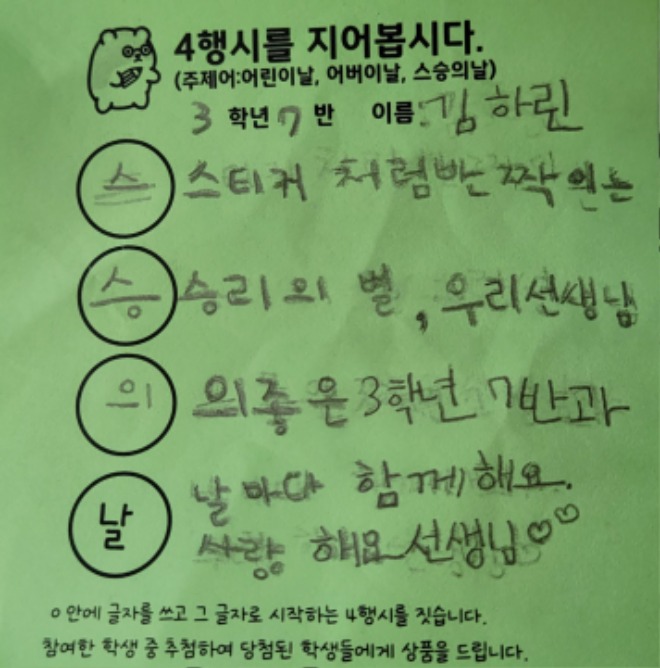 4행시를 지어봅시다.
(주제어:어린이날, 어버이날, 스승의날)
3 학년 7 반 이름: 김하린
스 스티커 처럼반짝이는
승 승리의 별, 우리선생님
의 의좋은3학년 7반과
날 날마다 함께해요.
사랑 해요 선생님♡♡
○ 안에 글자를 쓰고 그 글자로 시작하는 4행시를 짓습니다.
참여한 학생 중 추첨하여 당첨된 학생들에게 상품을 드립니다.